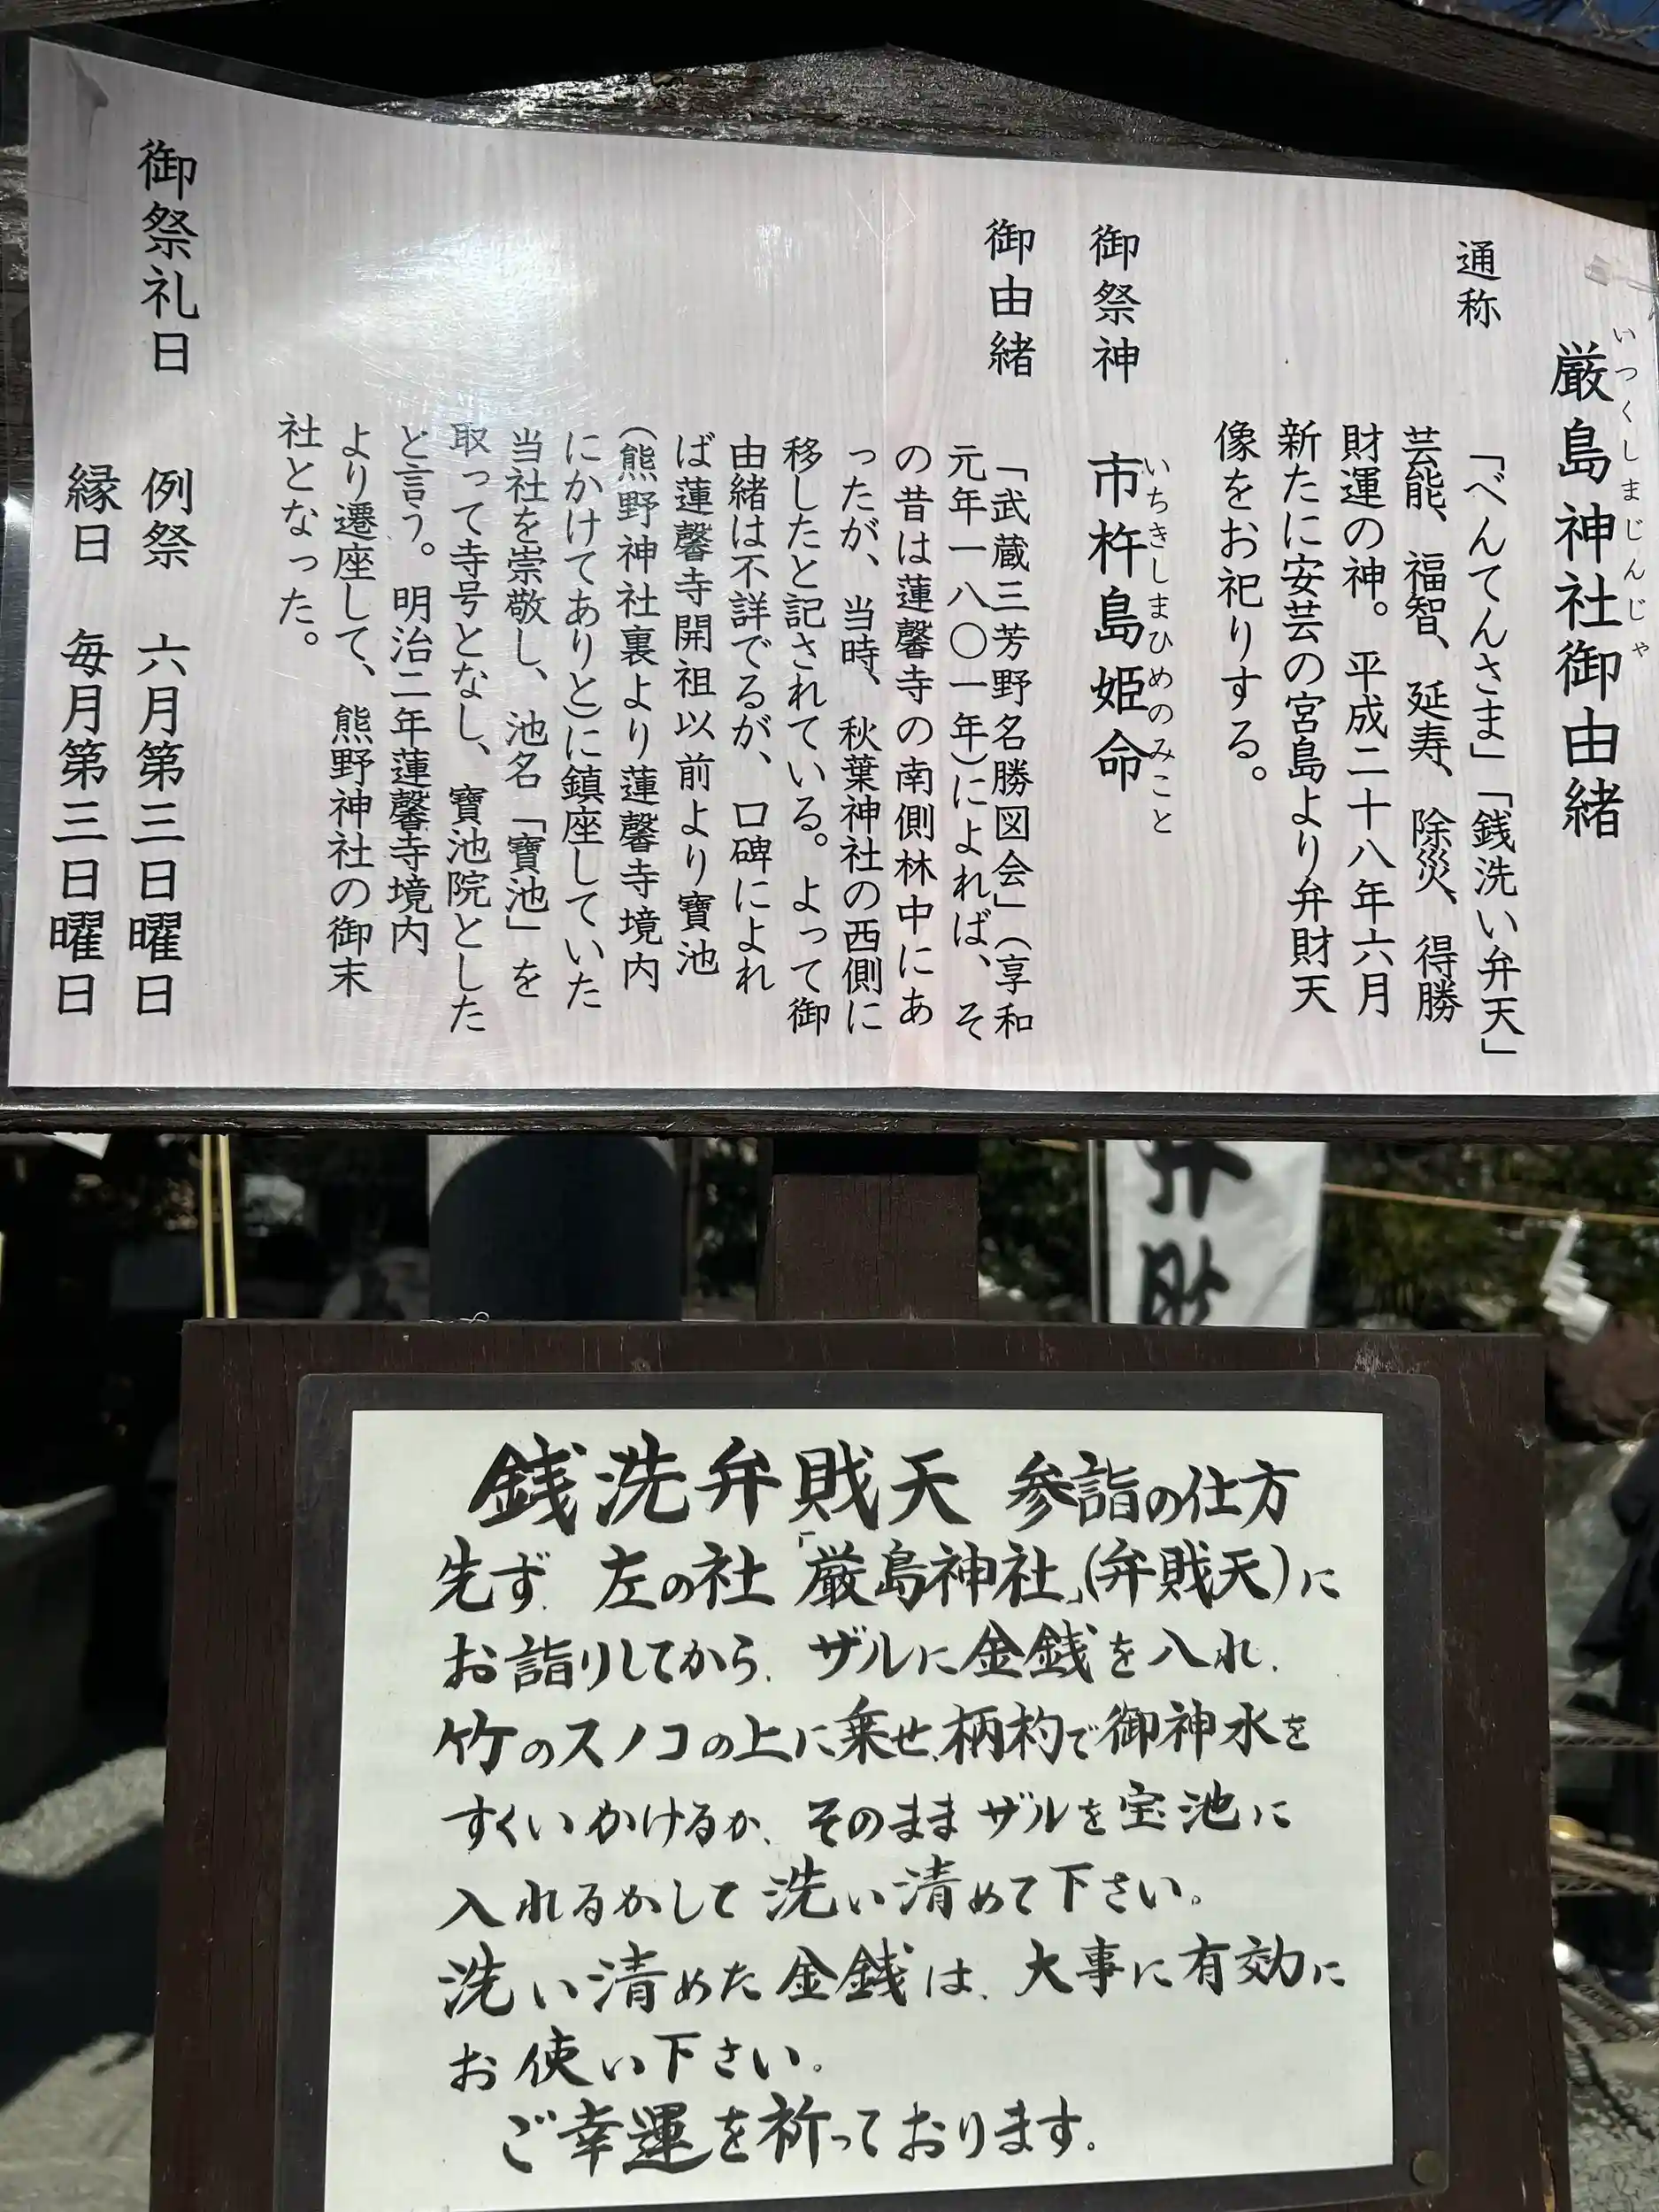 厳島神社御由緒
いつくしまじんじゃ
通称 「べんてんさま」「銭洗い弁天」
芸能、福智、延寿、除災、得勝
財運の神。平成二十八年六月
新たに安芸の宮島より弁財天
像をお祀りする。
御祭神 市杵島姫命
いちきしまひめのみこと
御由緒 「武蔵三芳野名勝図会」(享和
元年一八〇一年)によれば、そ
の昔は蓮馨寺の南側林中にあ
ったが、当時、秋葉神社の西側に
移したと記されている。よって御
由緒は不詳でるが、口碑によれ
ば蓮馨寺開祖以前より寶池
(熊野神社裏より蓮馨寺境内
にかけてありと)に鎮座していた
当社を崇敬し、池名「寶池」を
取って寺号となし、寶池院とした
と言う。明治二年蓮馨寺境内
より遷座して、熊野神社の御末
社となった。
御祭礼日 例祭 六月第三日曜日
縁日 毎月第三日曜日
弁財
銭洗弁財天 参詣の仕方
先ず、左の社「厳島神社」(弁財天)に
お詣りしてから、ザルに金銭を入れ、
竹のスノコの上に乗せ、柄杓で御神水を
すくいかけるか、そのままザルを宝池に
入れるかして洗い清めて下さい。
洗い清めた金銭は、大事に有効に
お使い下さい。
ご幸運を祈っております。